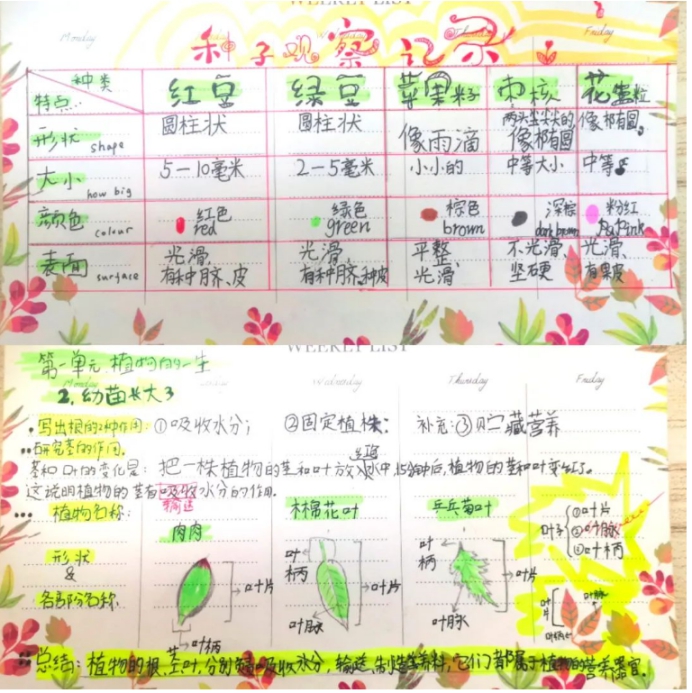 WEEKLY LIST
Monday Friday
种子观察记录
种类 特点 红豆 绿豆 苹果籽 枣核 花生粒
形状 shape 圆柱状 圆柱状 像雨滴 两头尖尖的像椭圆 像椭圆
大小 how big 5-10毫米 2-5毫米 小小的 中等大小 中等
颜色 colour 红色 red 绿色 green 棕色 brown 深棕 dark brown 粉红 Pink
表面 surface 光滑、有种脐、皮 光滑、有种脐、种皮 平整、光滑 不光滑、坚硬 光滑、有果皮
WEEKLY LIST
第一单元 植物的一生
Monday Wednesday Thursday Friday
2. 幼苗长大了
写出根的2种作用: ①吸收水分; ②固定植株; 补充:③贮藏营养
研究茎的作用。
茎和叶的变化是: 把一株植物的茎和叶放入红水中,15分钟后,植物的茎和叶变红了。
这说明植物的茎有吸收水分的作用。
输送
植物名称: 肉肉 木棉花叶 乒乓菊叶
叶 ①叶片 ②叶脉 ③叶柄
形状 & 各部份名称
叶片 叶柄
叶柄 叶片 叶脉
叶柄 叶片 叶脉
叶片 叶脉 叶柄
总结: 植物的根、茎、叶,分别吸收水分,输送,制造营养料,它们都属于植物的营养器官.